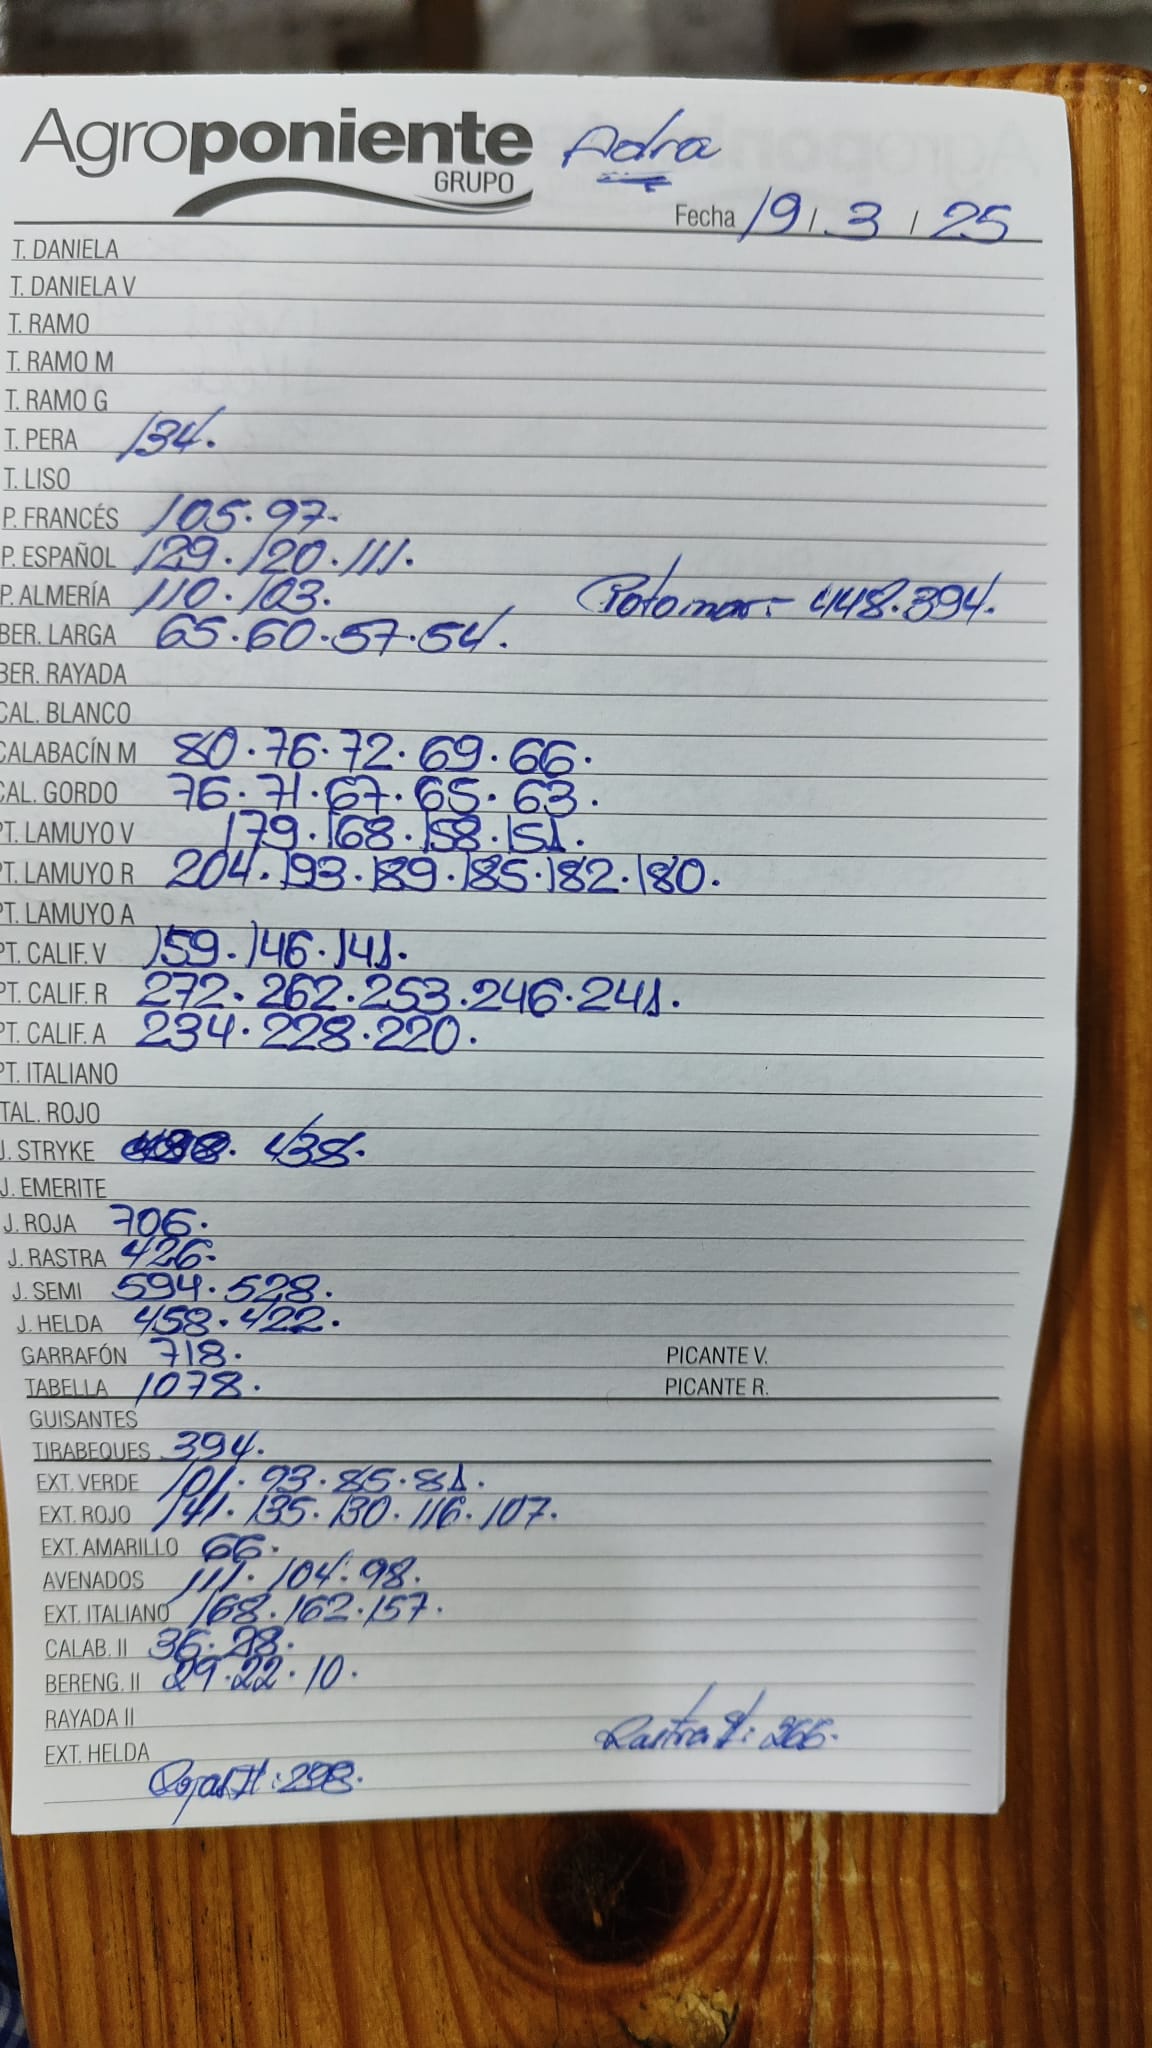 Agroponiente Adra
GRUPO
Fecha 19 / 3 / 25
T. DANIELA
T. DANIELA V
T. RAMO
T. RAMO M
T. RAMO G
T. PERA 134.
T. LISO
P. FRANCÉS 105. 97.
P. ESPAÑOL 129. 120. 111.
P. ALMERÍA 110. 103. Potomac:- 448.394.
BER. LARGA 65. 60. 57. 54.
BER. RAYADA
CAL. BLANCO
CALABACÍN M 80. 76. 72. 69. 66.
CAL. GORDO 76. 71. 67. 65. 63.
PT. LAMUYO V 179. 168. 158. 151.
PT. LAMUYO R 204. 193. 189. 185. 182. 180.
PT. LAMUYO A
PT. CALIF. V 159. 146. 141.
PT. CALIF. R 272. 262. 253. 246. 241.
PT. CALIF. A 234. 228. 220.
PT. ITALIANO
TAL. ROJO
J. STRYKE 438.
J. EMERITE
J. ROJA 706.
J. RASTRA 426.
J. SEMI 594. 528.
J. HELDA 458. 422.
GARRAFÓN 718. PICANTE V.
TABELLA 1078. PICANTE R.
GUISANTES
TIRABEQUES 394.
EXT. VERDE 101. 93. 85. 81.
EXT. ROJO 141. 135. 130. 116. 107.
EXT. AMARILLO 66.
AVENADOS 111. 104. 98.
EXT. ITALIANO 168. 162. 157.
CALAB. II 36. 28.
BERENG. II 29. 22. 10.
RAYADA II Rastra II: 266.
EXT. HELDA
Rojas II: 298.